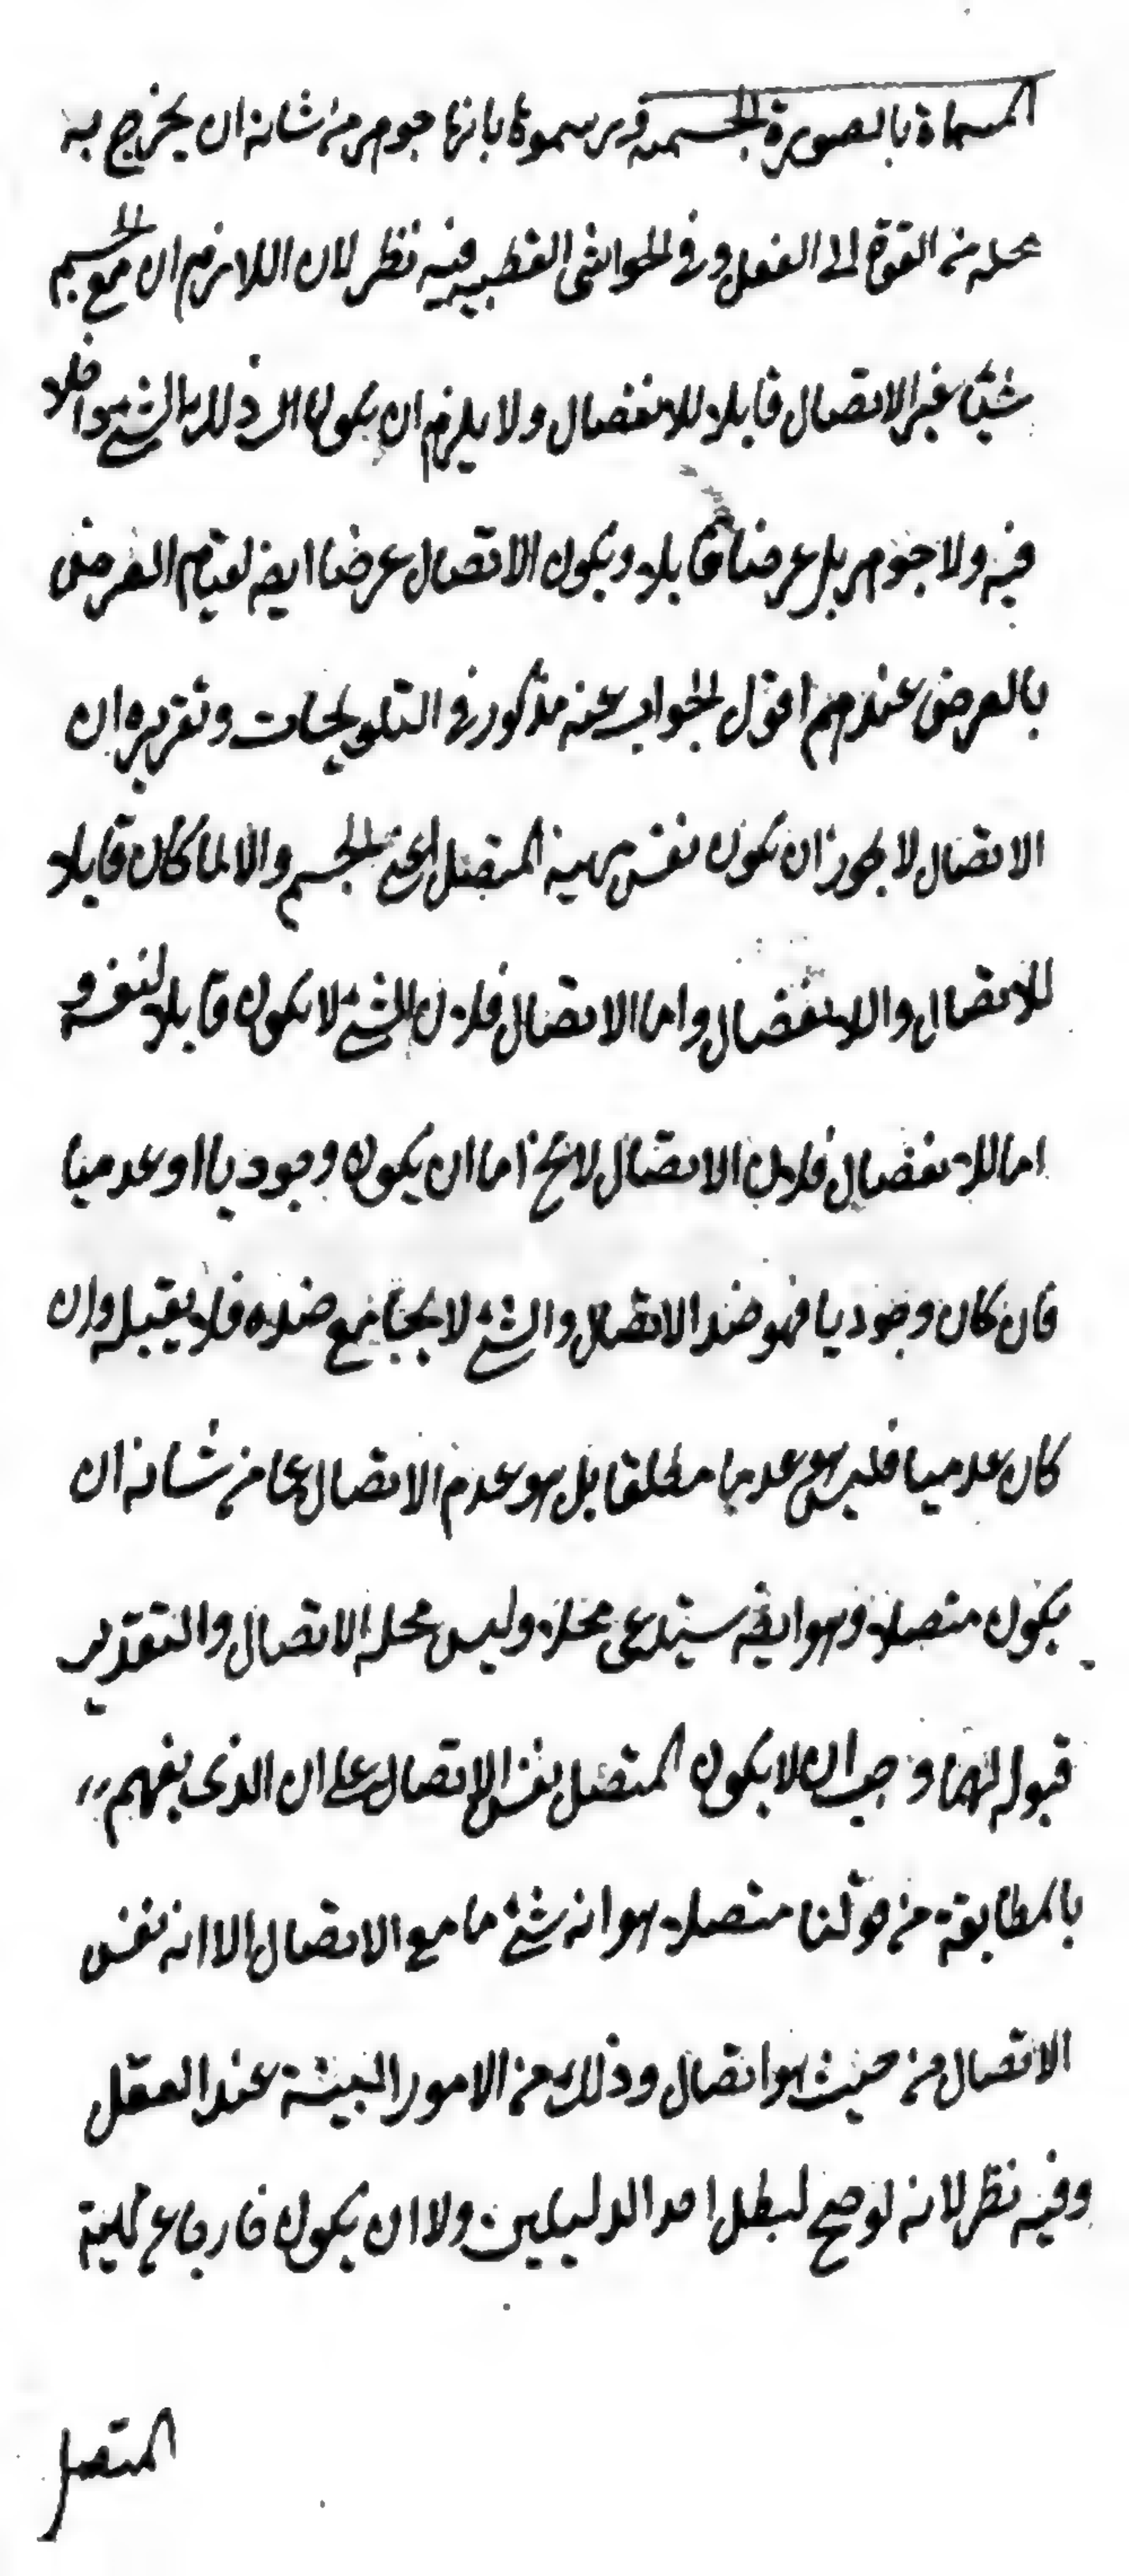 المسماة بالصورة الجسمية ورسموها بانها جوهر من شانه ان يخرج به
محله من القوة الى الفعل وفي الحواشي القطبيه فيه نظر لان اللازم ان مع الجسم
شيئا غير الاتصال قابلا للانفصال ولا يلزم ان يكون ذلك الشئ
فيه ولا جوهر بل عرضا قابلا ويكون الاتصال عرضا ايضه لقيام العرض
بالعرض عندهم اقول الجواب عنه مذكور في التلويحات وتقريره ان
الاتصال لا يجوز ان يكون نفس مهية المتصل اعني الجسم والا لما كان قابلا
للاتصال والانفصال واما الاتصال فلان الشئ لا يكون قابلا لنفسه و
اما للانفصال فلان الاتصال لا يخ اما ان يكون وجوديا او عدميا
فان كان وجوديا فهو ضد الاتصال والشئ لا يجامع ضده فلا يقبله وان
كان عدميا فليس هو عدما مطلقا بل هو عدم الاتصال عما من شانه ان
يكون متصلا وهو ايضه يستدعى محلا وليس محله الاتصال والتقدير
قبوله لهما وجب ان لا يكون المتصل نفس الاتصال على ان الذى يفهم
بالمطابقة من قولنا متصلا هو انه شئ ما مع الاتصال لا انه نفس
الاتصال من حيث هو اتصال وذلك من الامور البينة عند العقل
وفيه نظر لانه لو صح لبطل احد الدليلين ولا ان يكون مهية
المتصل